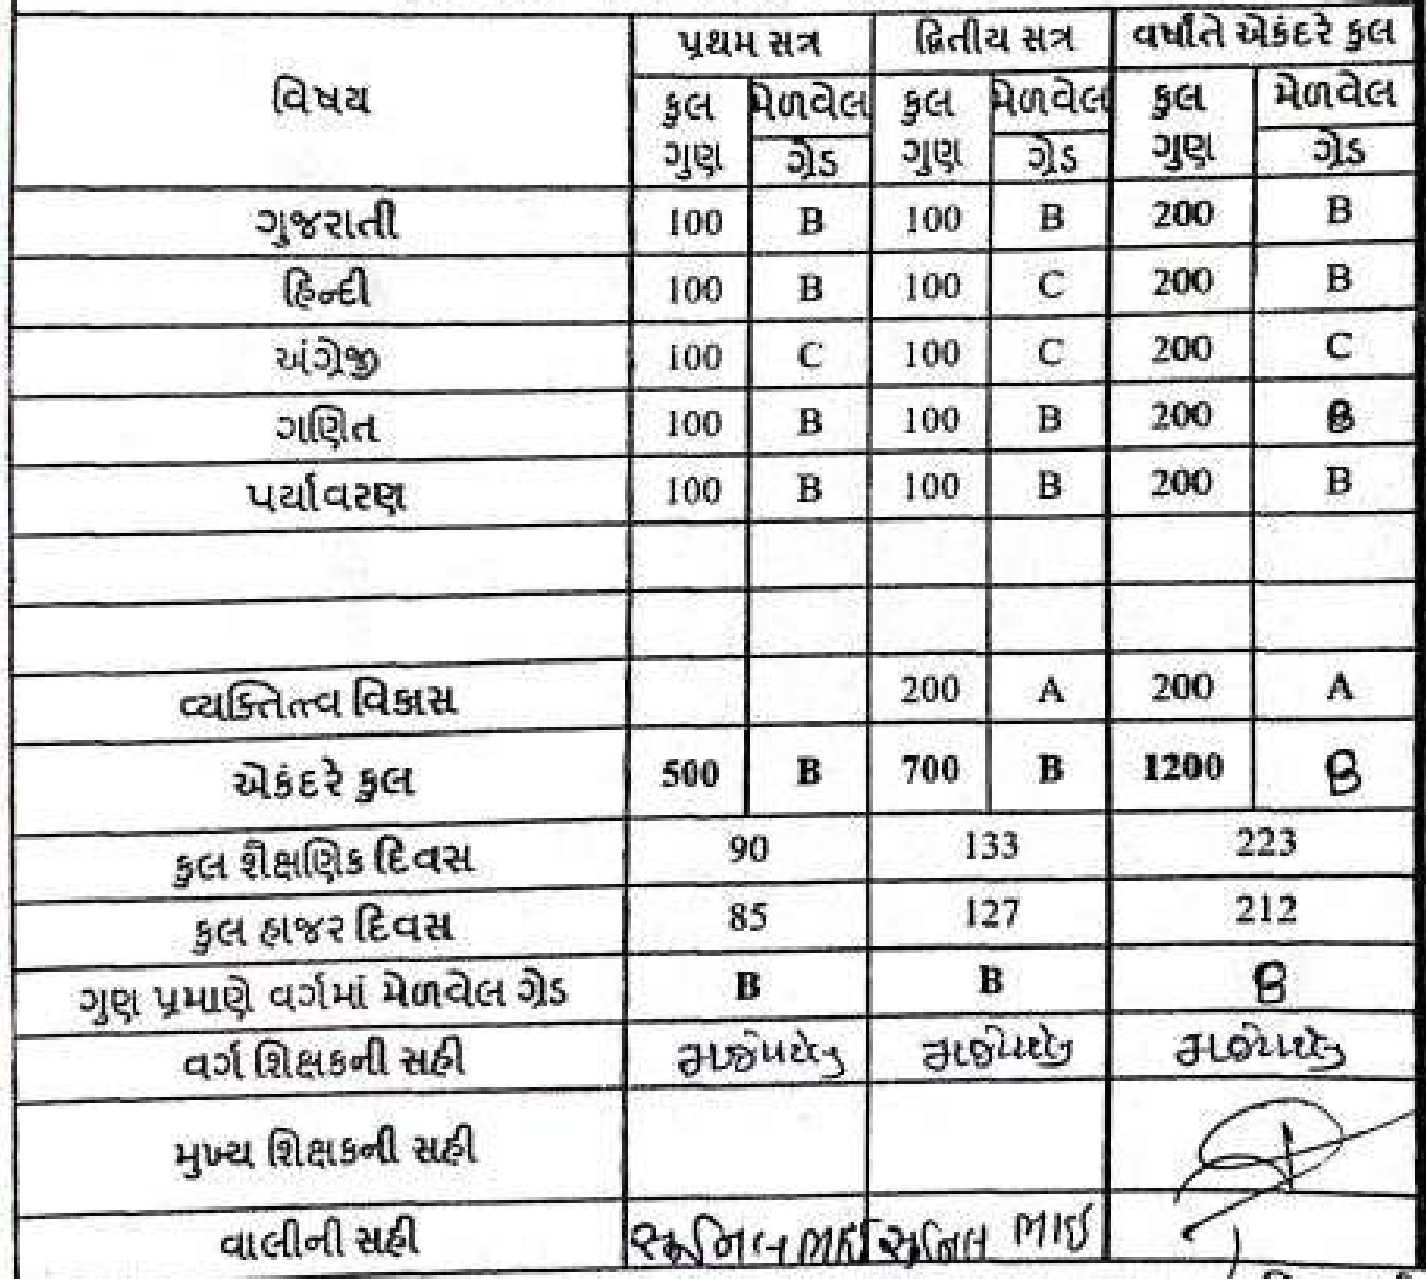 વિષય પ્રથમ સત્ર દ્વિતીય સત્ર વર્ષાંતે એકંદરે કુલ
કુલ ગુણ મેળવેલ ગ્રેડ કુલ ગુણ મેળવેલ ગ્રેડ કુલ ગુણ મેળવેલ ગ્રેડ
ગુજરાતી 100 B 100 B 200 B
હિન્દી 100 B 100 C 200 B
અંગ્રેજી 100 C 100 C 200 C
ગણિત 100 B 100 B 200 B
પર્યાવરણ 100 B 100 B 200 B
વ્યક્તિત્વ વિકાસ 200 A 200 A
એકંદરે કુલ 500 B 700 B 1200 B
કુલ શૈક્ષણિક દિવસ 90 133 223
કુલ હાજર દિવસ 85 127 212
ગુણ પ્રમાણે વર્ગમાં મેળવેલ ગ્રેડ B B B
વર્ગ શિક્ષકની સહી
મુખ્ય શિક્ષકની સહી
વાલીની સહી સુનિલ ભાઈ સુનિલ ભાઈ